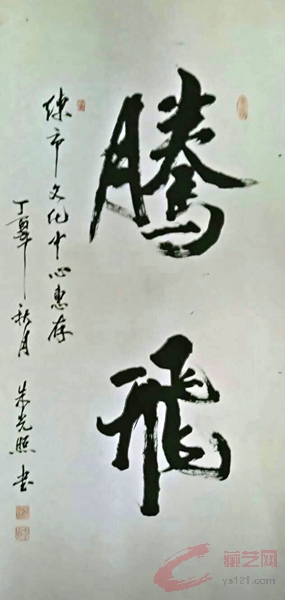 騰飛
练市文化中心惠存
丁酉年秋月 朱光照书
藏艺网
ys121.com